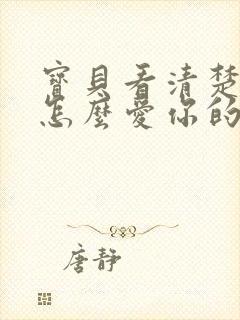 寶貝看清楚
怎麼愛你的
唐靜